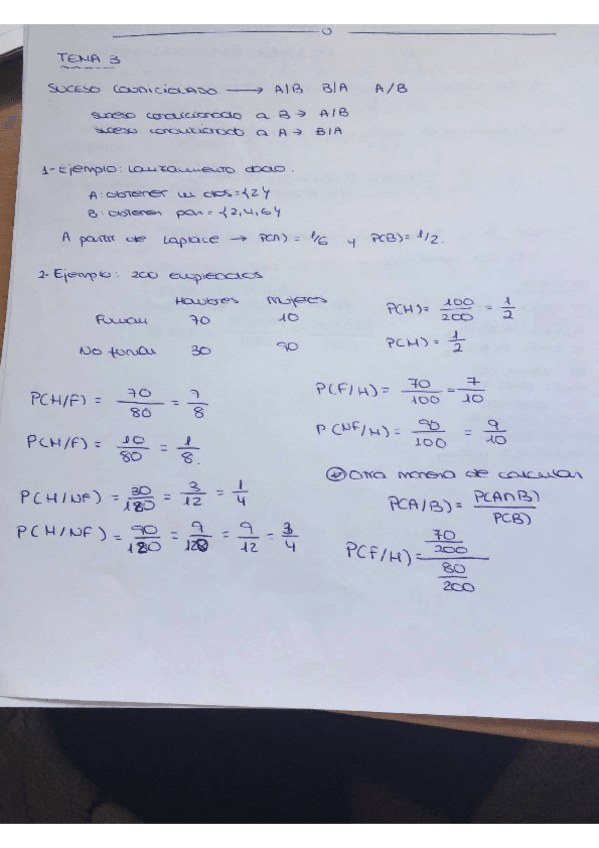 TEMA 3
SUCESO CONDICIOLADO → A/B B/A A/B
suceso condicionado a B → A/B
suceso condicionado a A → B/A
1- Ejemplo: Lanzamiento dado.
A: obtener un dos = {2}
B: obtener par = {2,4,6}
A partir de Laplace → P(A) = 1/6 y P(B) = 1/2.
2- Ejemplo: 200 empleados
Hombres Mujeres
Fuman 70 10
No fuman 30 90
P(H) = 100/200 = 1/2
P(M) = 1/2
P(H/F) = 70/80 = 7/8
P(M/F) = 10/80 = 1/8.
P(H/NF) = 30/120 = 3/12 = 1/4
P(M/NF) = 90/120 = 9/12 = 9/12 = 3/4
P(F/H) = 70/100 = 7/10
P(NF/M) = 90/100 = 9/10
Otra manera de calcular
P(A/B) = P(A∩B)/P(B)
P(F/H) = 70/200 / 80/200